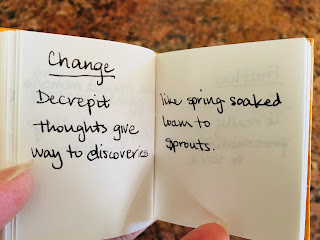 Change
Decrepit
Thoughts give
way to discoveries
like spring soaked
loam to
sprouts.